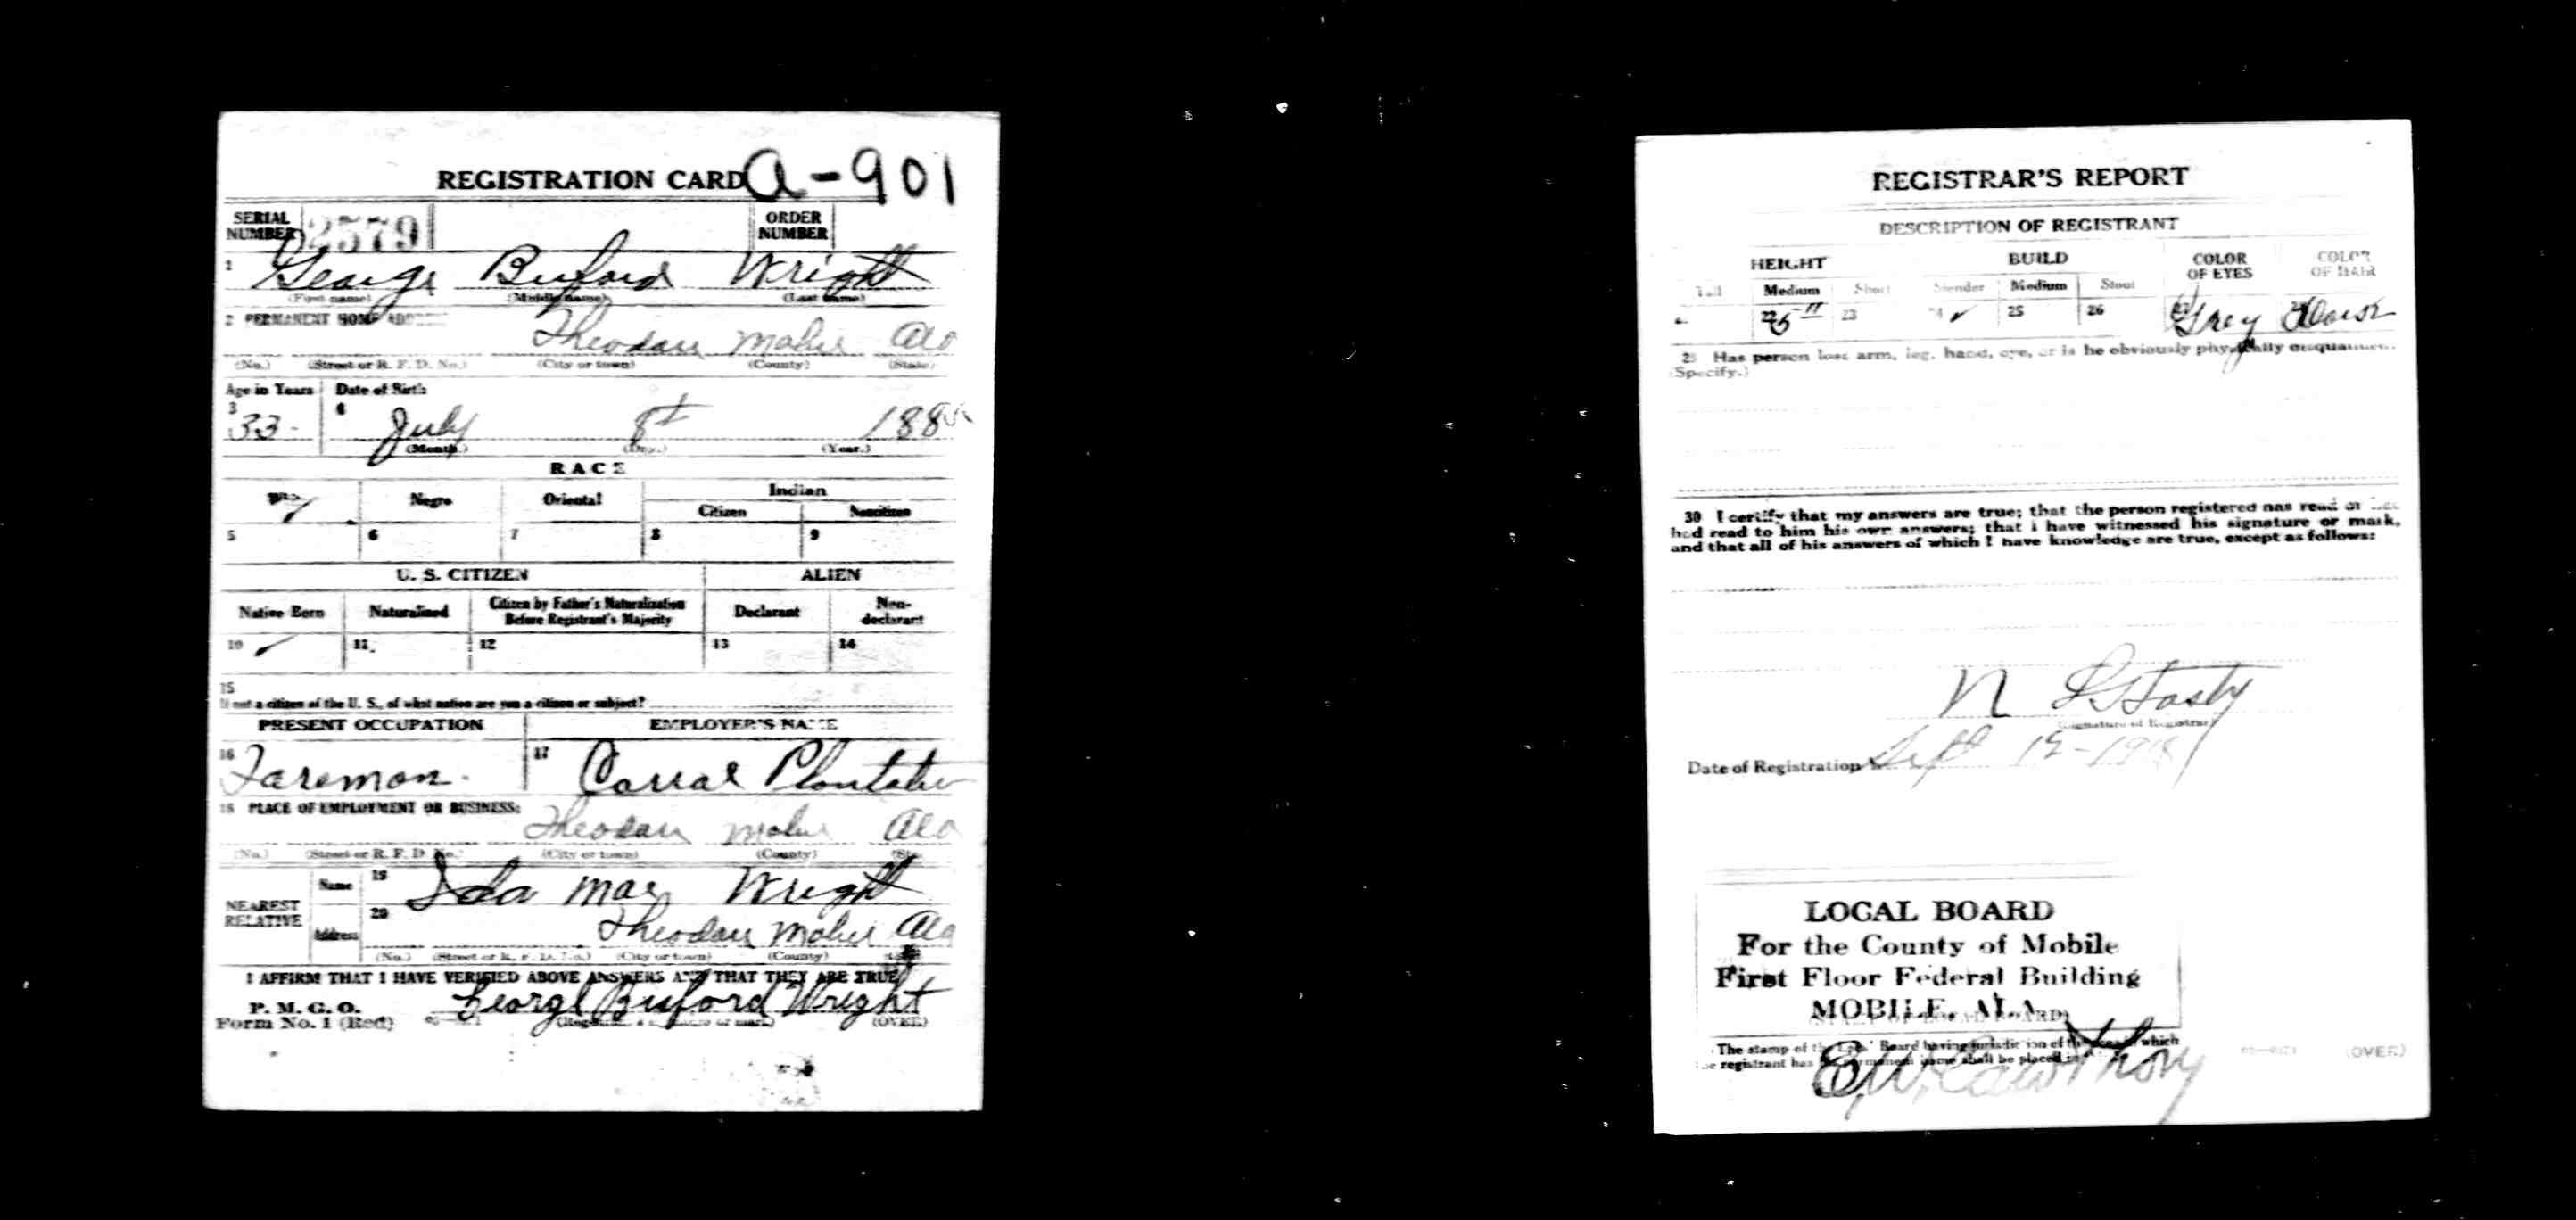 REGISTRATION CARD a-901
SERIAL NUMBER 2579 ORDER NUMBER
1 George Buford Wright
(First name) (Middle name) (Last name)
2 PERMANENT HOME
Theodore Mobile Ala
(No.) (Street or R. F. D. No.) (City or town) (County) (State)
Age in Years Date of Birth
3 33 4 July 8t 188
(Month) (Day.) (Year.)
RACE
Negro Oriental Indian
Citizen Noncitizen
5 6 7 8 9
U. S. CITIZEN ALIEN
Native Born Naturalized Citizen by Father's Naturalization Before Registrant's Majority Declarant Non-declarant
10 ✓ 11 12 13 14
15
If not a citizen of the U. S., of what nation are you a citizen or subject?
PRESENT OCCUPATION EMPLOYER'S NAME
16 Faremon 17 Plantation
18 PLACE OF EMPLOYMENT OR BUSINESS:
Theodore Mobile Ala
(No.) (Street or R. F. D. No.) (City or town) (County)
NEAREST RELATIVE Name 19 Ida mae Wright
Address 20 Theodore Mobile Ala
(No.) (Street or R. F. D. No.) (City or town) (County)
I AFFIRM THAT I HAVE VERIFIED ABOVE ANSWERS AND THAT THEY ARE TRUE
P. M. G. O.
Form No. 1 (Red) George Buford Wright (OVER)
REGISTRAR'S REPORT
DESCRIPTION OF REGISTRANT
HEIGHT BUILD COLOR OF EYES COLOR OF HAIR
Tall Medium Short Slender Medium Stout
22 23 24 ✓ 25 26 Grey
Has person lost arm, leg, hand, eye, or is he obviously physically disqualified?
(Specify.)
30 I certify that my answers are true; that the person registered has read or has
had read to him his own answers; that I have witnessed his signature or mark,
and that all of his answers of which I have knowledge are true, except as follows:
(Signature of Registrar)
Date of Registration Sept 12-1918
LOCAL BOARD
For the County of Mobile
First Floor Federal Building
MOBILE, ALA.
(STAMP OF LOCAL BOARD)
The stamp of the Local Board having jurisdiction of the which
the registrant has permanent home shall be placed in
(OVER)